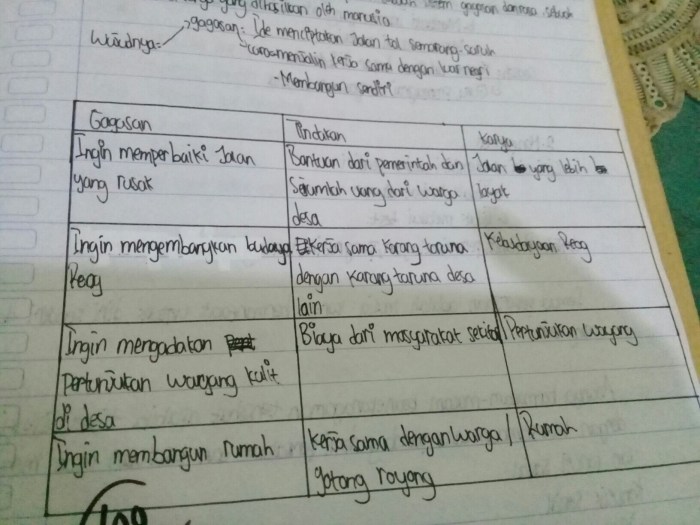 yang dihasilkan oleh manusia
Wujudnya: gagasan: Ide menciptakan Jalan tol semarang-
menjalin kerja sama dengan luar negri
- Membangun sendiri
Gagasan Tindakan Karya
Ingin memperbaiki Jalan Bantuan dari pemerintah dan Jalan yang lebih
yang rusak Sejumlah uang dari warga layak
desa
Ingin mengembangkan budaya Kerja sama Karang taruna Kebudayaan Reog
Reog dengan Karang taruna desa
lain
Ingin mengadakan Biaya dari masyarakat sekitar Pertunjukan wayang
Pertunjukan wayang kulit
di desa
Ingin membangun rumah Kerja sama dengan warga / Rumah
gotong royong
100